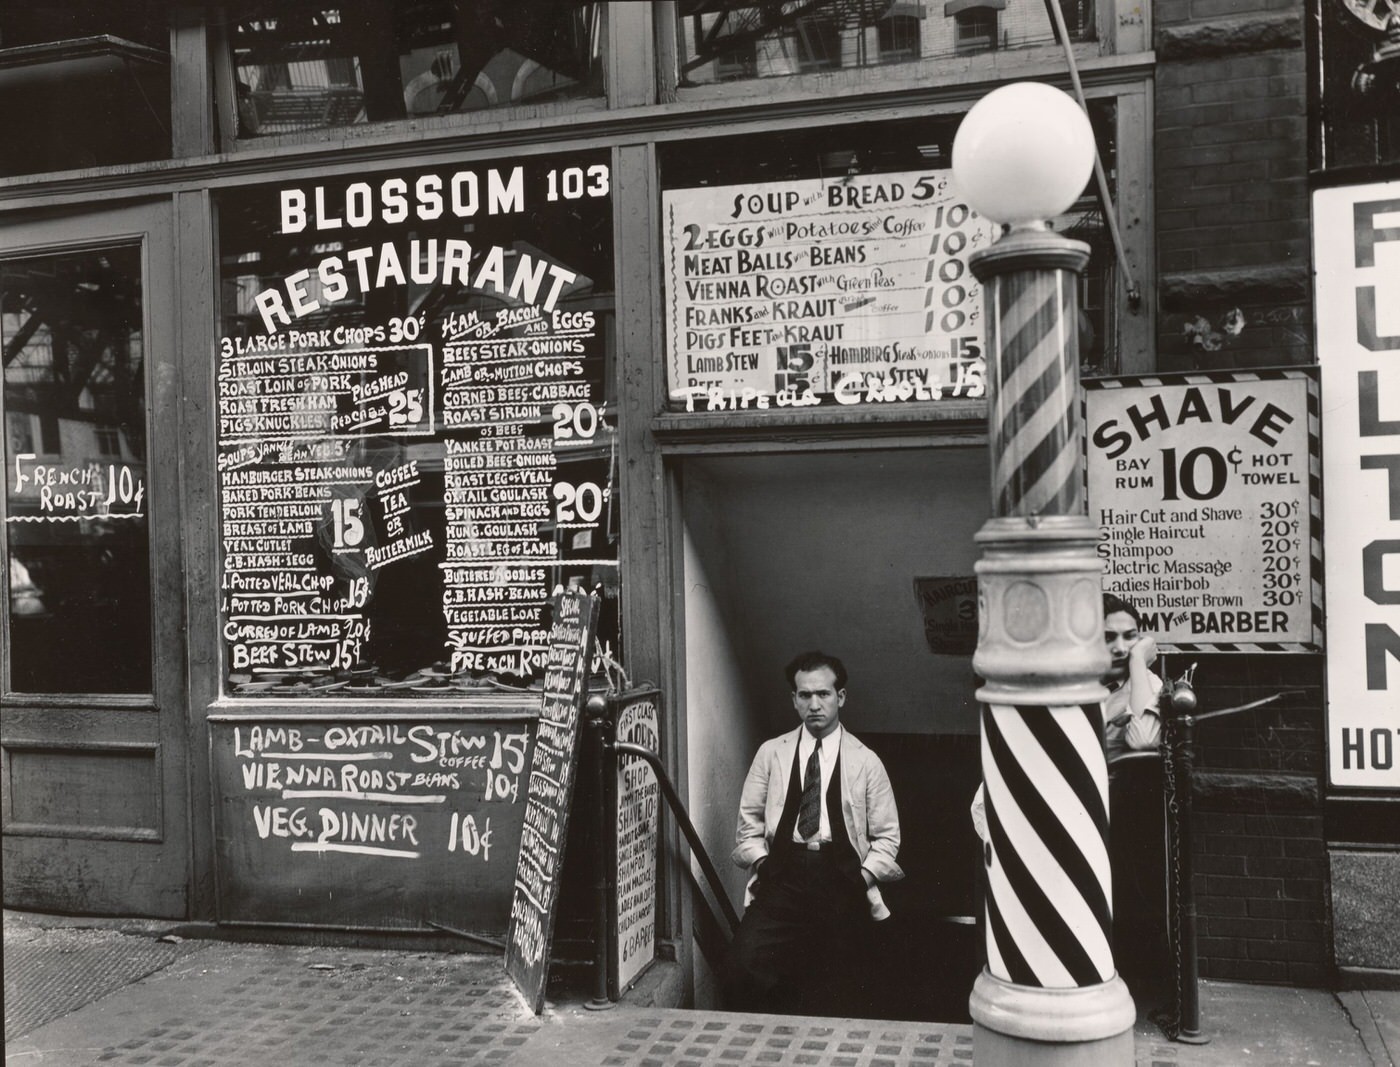 BLOSSOM 103
RESTAURANT
3 LARGE PORK CHOPS 30¢
SIRLOIN STEAK-ONIONS
ROAST LOIN OF PORK
ROAST FRESH HAM
PIGS KNUCKLES
PIGS HEAD
RED CABB
25¢
SOUPS
5¢
HAMBURGER STEAK-ONIONS
BAKED PORK-BEANS
PORK TENDERLOIN
BREAST OF LAMB
VEAL CUTLET
C.B. HASH-1EGG
15¢
COFFEE
TEA
OR
BUTTERMILK
1. POTTED VEAL CHOP 15¢
1. POTTED PORK CHOP
CURREY OF LAMB 20¢
BEEF STEW 15¢
HAM OR BACON AND EGGS
BEEF STEAK-ONIONS
LAMB OR MUTTON CHOPS
CORNED BEEF-CABBAGE
ROAST SIRLOIN
OF BEEF
20¢
YANKEE POT ROAST
BOILED BEEF-ONIONS
ROAST LEG OF VEAL
OXTAIL GOULASH
SPINACH AND EGGS
HUNG. GOULASH
ROAST LEG OF LAMB
20¢
BUTTERED NOODLES
C.B. HASH-BEANS
VEGETABLE LOAF
STUFFED PEPPE
FRENCH
ROAST 10¢
LAMB-OXTAIL STEW 15¢
COFFEE
VIENNA ROAST BEANS 10¢
VEG. DINNER 10¢
SPECIAL
FIRST CLASS
BARBER
SHOP
SHAVE 10¢
SHAMPOO
6 BARBERS
SOUP with BREAD 5¢
2 EGGS with Potatoes and Coffee 10¢
MEAT BALLS with BEANS " " 10¢
VIENNA ROAST with Green Peas 10¢
FRANKS and KRAUT Bread Coffee 10¢
PIGS FEET and KRAUT 10¢
LAMB STEW 15¢ HAMBURG Steak & onions 15
BEEF " 15¢ MUTTON STEW
TRIPE ala CREOLE 15
HAIRCUT
SHAVE
BAY RUM 10¢ HOT TOWEL
Hair Cut and Shave 30¢
Single Haircut 20¢
Shampoo 20¢
Electric Massage 20¢
Ladies Hairbob 30¢
ildren Buster Brown 30¢
MY THE BARBER
FULTON
HOT